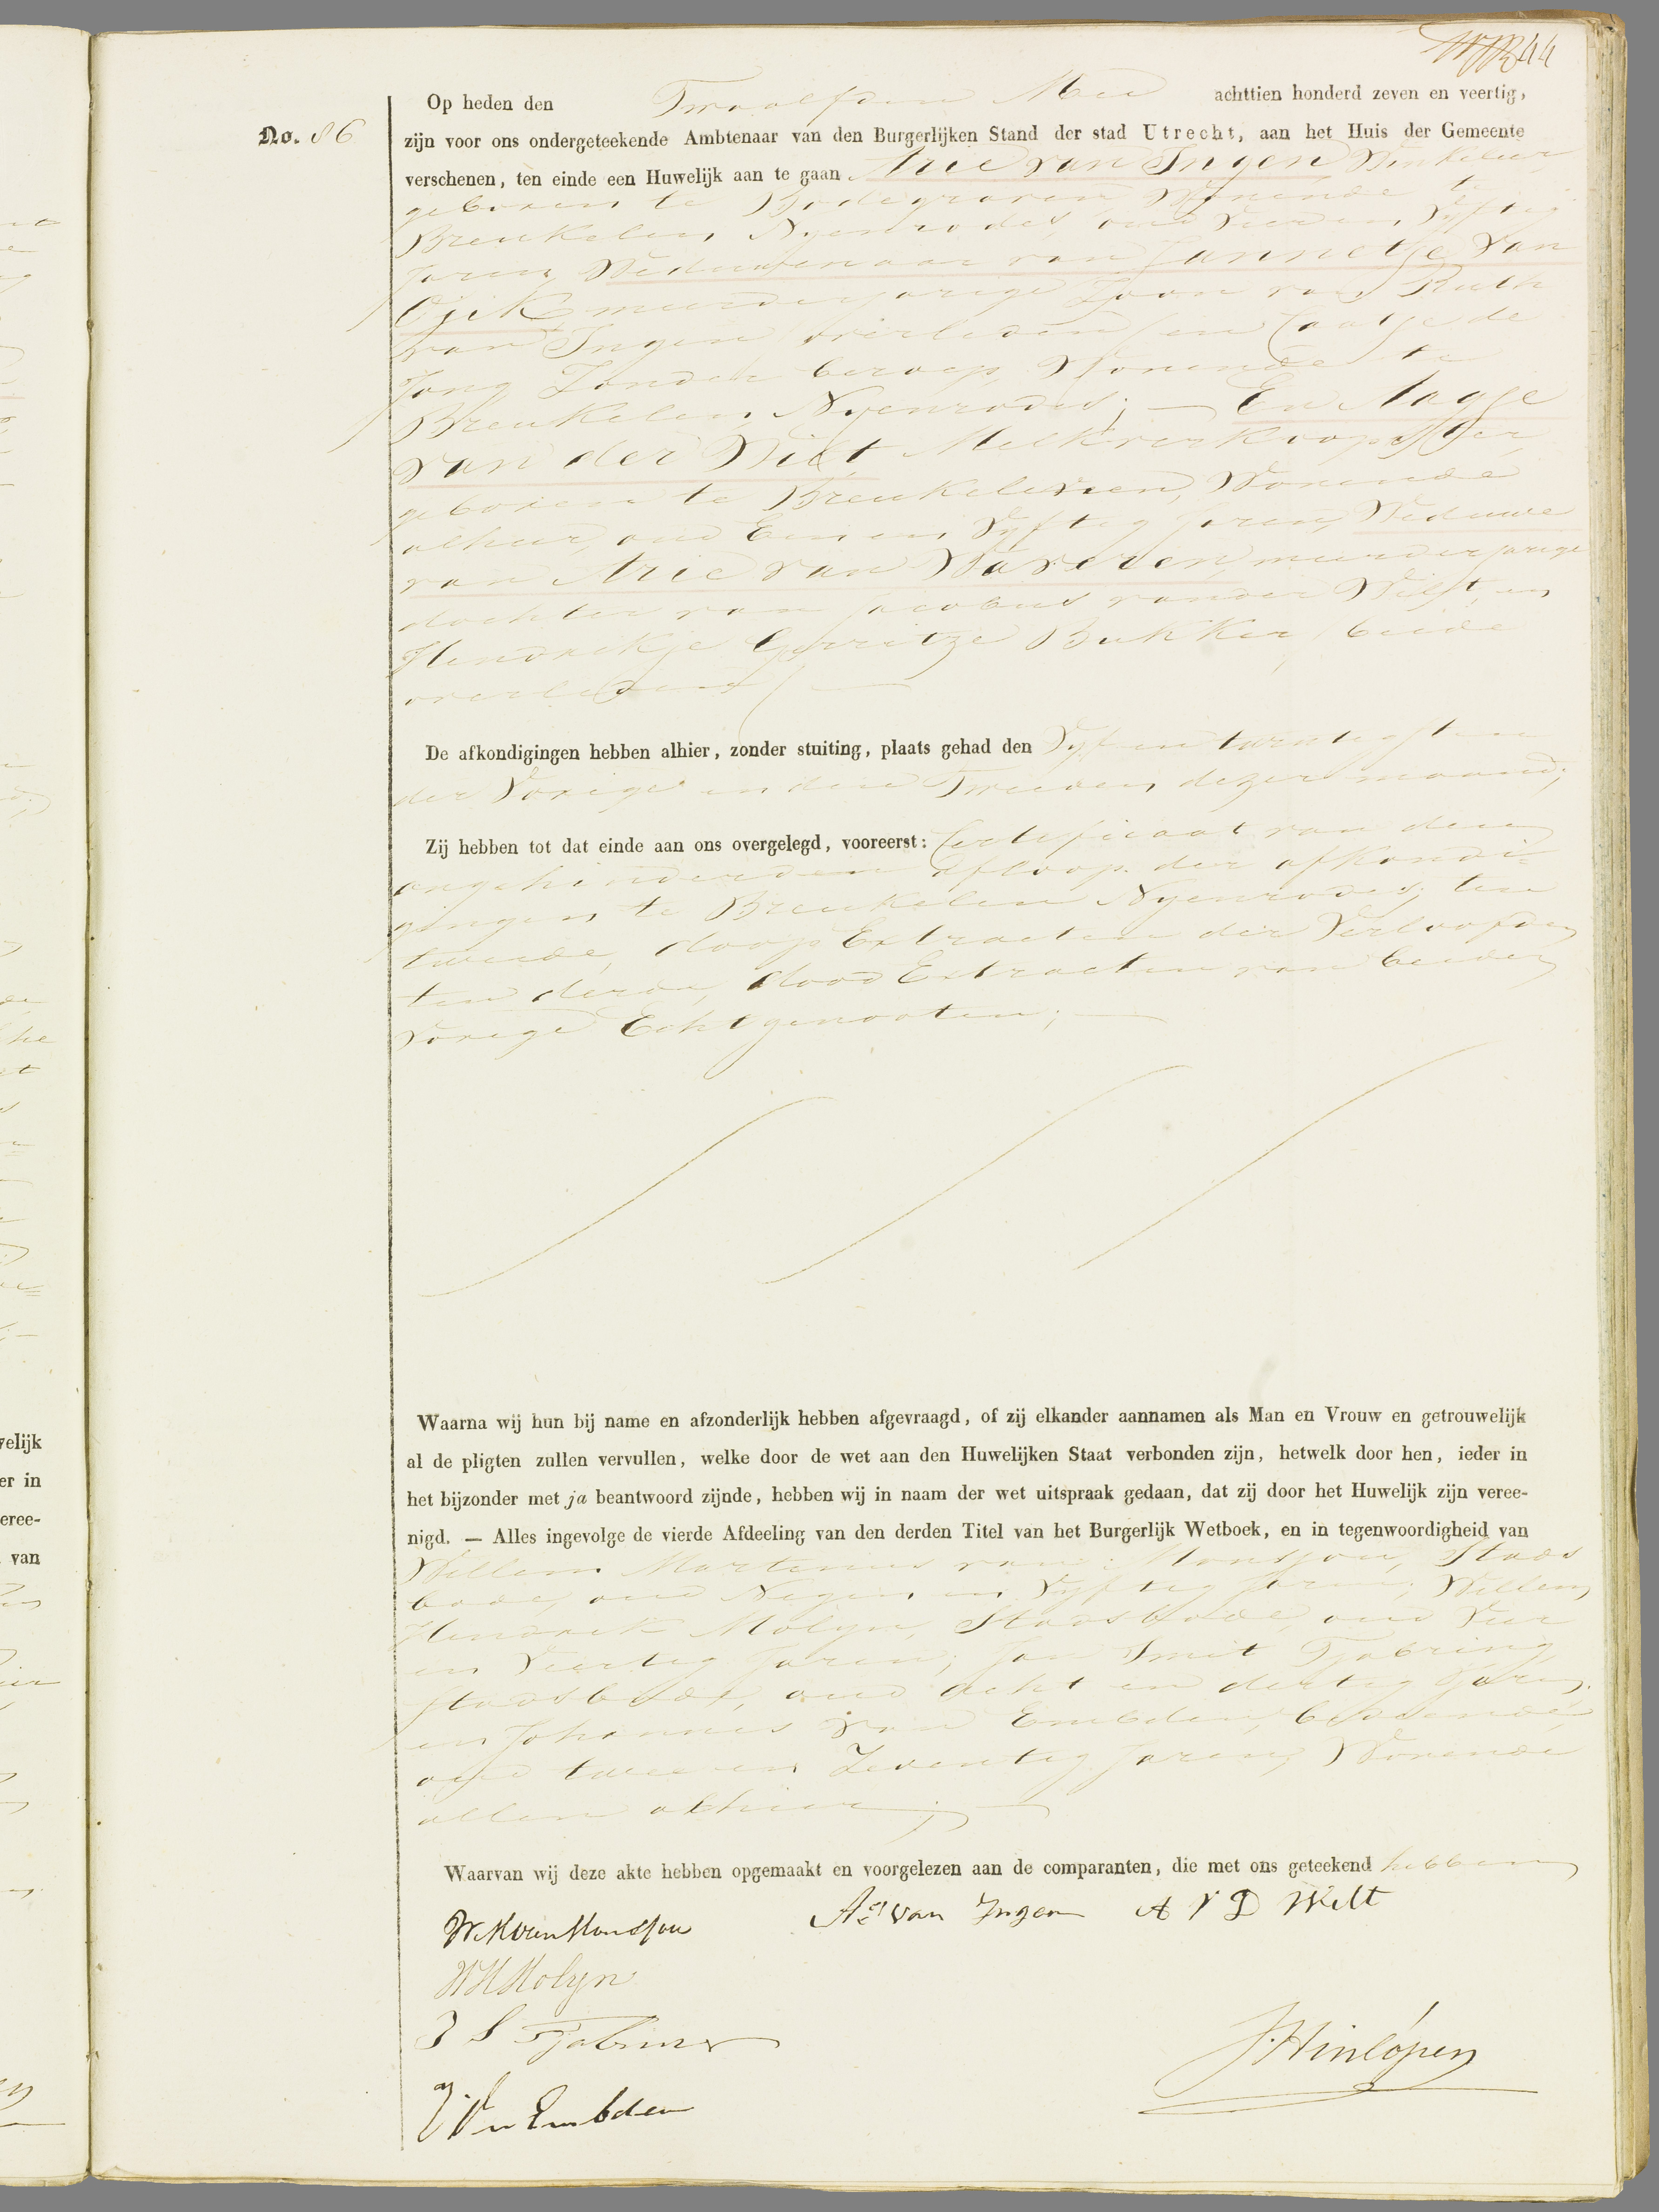 44
Op heden den Twaalfden Mei achttien honderd zeven en veertig,
No. 86
zijn voor ons ondergeteekende Ambtenaar van den Burgerlijken Stand der stad Utrecht, aan het Huis der Gemeente
verschenen, ten einde een Huwelijk aan te gaan Arie van Ingen Winkelier
geboren te Bodegraven Wonende te
Breukelen Nyenrodes, oud Vier en Vyftig
Jaren, Weduwenaar van Jannetje van
Eijk meerderjarige Zoon van Ruth
van Ingen overleden en Caatje de
Jong Zonder beroep, Wonende te
Breukelen Nyenrodes; — En Aagje
van der Wilt Melkverkoopster,
geboren te Breukeleveen, Wonende
alhier, oud Een en Vyftig Jaren, Weduwe
van Arie van Waveren, meerderjarige
dochter van Jacobus vander Wilt, en
Hendrikje Gerritze Bakker, beide
overleden; —
De afkondigingen hebben alhier, zonder stuiting, plaats gehad den Vyf en twintigsten
der Vorige en den Tweeden dezer maand;
Zij hebben tot dat einde aan ons overgelegd, vooreerst: Certificaat van den
ongehinderden afloop der afkondi=
gingen te Breukelen Nyenrodes; ten
tweede, doop Extracten der Verloofden
ten derde, dood Extracten van beider
Vorige Echtgenooten; —
Waarna wij hun bij name en afzonderlijk hebben afgevraagd, of zij elkander aannamen als Man en Vrouw en getrouwelijk
al de pligten zullen vervullen, welke door de wet aan den Huwelijken Staat verbonden zijn, hetwelk door hen, ieder in
het bijzonder met ja beantwoord zijnde, hebben wij in naam der wet uitspraak gedaan, dat zij door het Huwelijk zijn veree-
nigd. — Alles ingevolge de vierde Afdeeling van den derden Titel van het Burgerlijk Wetboek, en in tegenwoordigheid van
Willem Martinus van Monsjou, Stads
bode, oud Negen en Vyftig Jaren; Willem
Hendrik Molyn, Stadsbode, oud Vier
en Veertig Jaren; Jan Smit Tjabring
stadsbode, oud acht en dertig Jaren
en Johannes van Embden, bediende,
oud twee en Zeventig Jaren, Wonende
allen alhier; —
Waarvan wij deze akte hebben opgemaakt en voorgelezen aan de comparanten, die met ons geteekend hebben
W M van Monsjou Ae van Ingen A V D Wilt
W H Molyn
J S Tjabring
J. Hinlópen
J Vn Embden